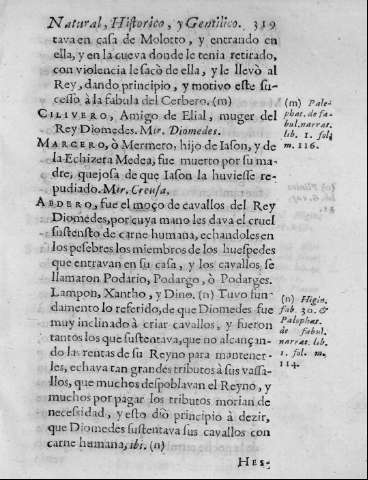 Natural, Historico, y Gentilico. 319
tava en casa de Molotto, y entrando en
ella, y en la cueva donde le tenia retirado,
con violencia le sacò de ella, y le llevò al
Rey, dando principio, y motivo este su-
cesso à la fabula del Cerbero. (m)
(m) Pale-
phat. de fa-
bul. narrat.
lib. 1. fol.
m. 116.
CILIVERO, Amigo de Elial, muger del
Rey Diomedes. Mir. Diomedes.
MARCERO, ò Mermero, hijo de Iason, y de
la Echizera Medea, fue muerto por su ma-
dre, quejosa de que Iason la huviesse re-
pudiado. Mir. Creusa.
ABDERO, fue el moço de cavallos del Rey
Diomedes, por cuya mano les dava el cruel
sustensto de carne humana, echandoles en
los pesebres los miembros de los huespedes
que entravan en su casa, y los cavallos se
llamaron Podario, Podargo, ò Podarges.
Lampon, Xantho, y Dino. (n) Tuvo fun-
damento lo referido, de que Diomedes fue
muy inclinado à criar cavallos, y fueron
tantos los que sustentava, que no alcançan-
do las rentas de su Reyno para mantener-
les, echava tan grandes tributos à sus vassa-
llos, que muchos despoblavan el Reyno, y
muchos por pagar los tributos morian de
necessidad, y esto diò principio à dezir,
que Diomedes sustentava sus cavallos con
carne humana, ibi. (n)
(n) Higin.
fab. 30. &
Palephat.
de fabul.
narrat. lib.
1. fol. m.
114.
Hes-